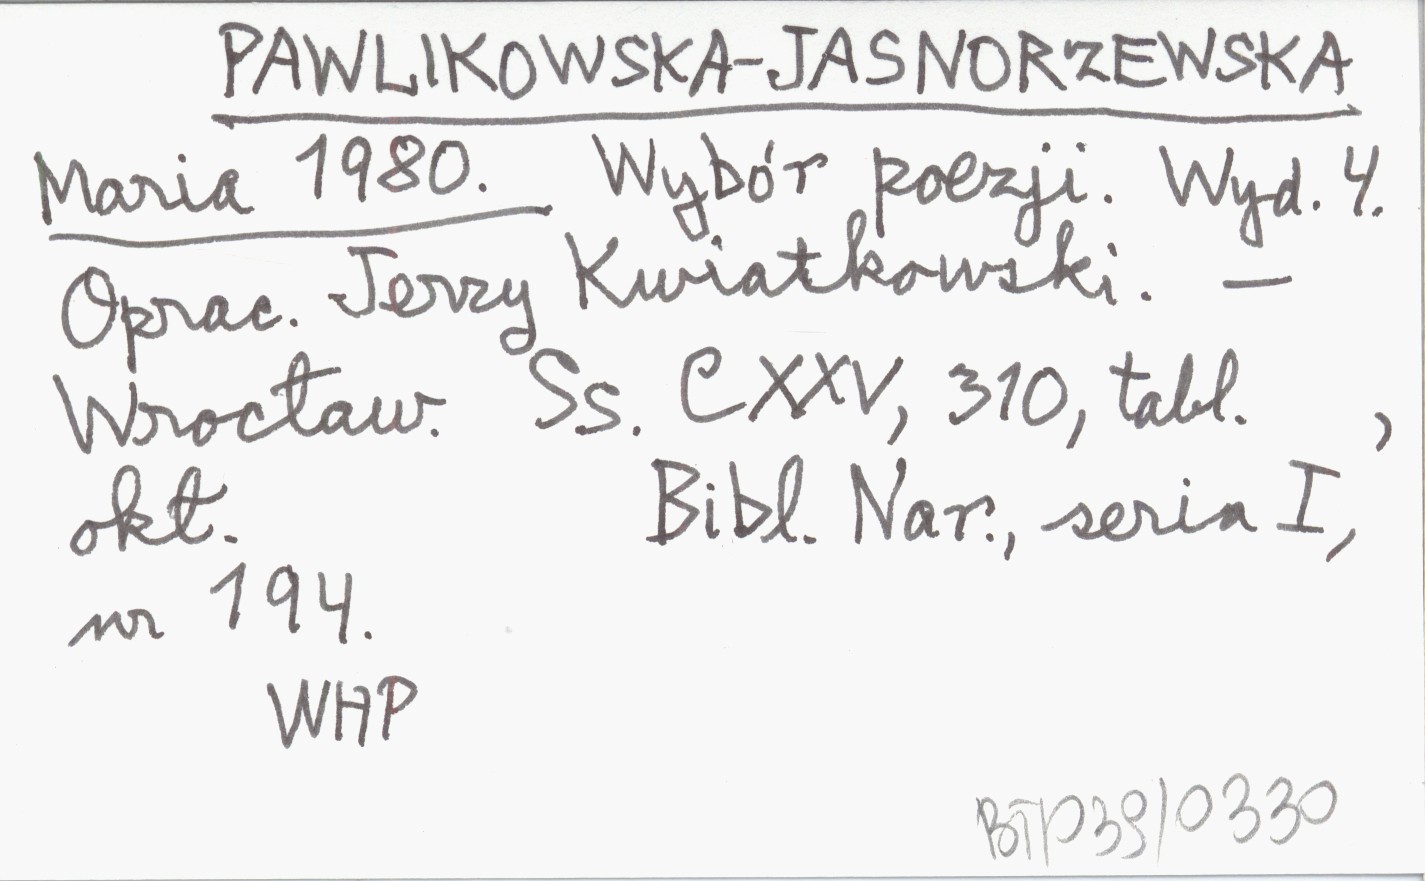 PAWLIKOWSKA-JASNORZEWSKA
Maria 1980. Wybór poezji. Wyd. 4.
Oprac. Jerzy Kwiatkowski. —
Wrocław. Ss. CXXV, 310, tabl. ,
okt. Bibl. Nar., seria I,
nr 194.
WHP
BT/039/0330